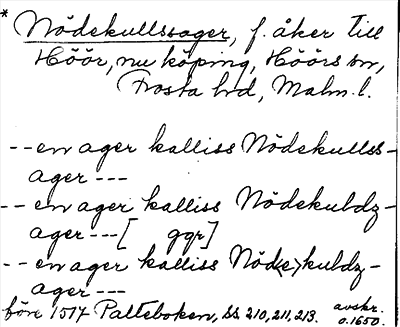 * Nödekullsager, f. åker till
Höör, nu köping, Höörs sn,
Frosta hd, Malm. l.
-- en ager kalliss Nödekullss-
ager ---
-- en ager kalliss Nödekuldz-
ager --- [ ggr]
-- en ager kalliss Nöd<e>kuldz-
ager ---
före 1514 Palteboken, ss 210, 211, 213. avskr.
o. 1650.